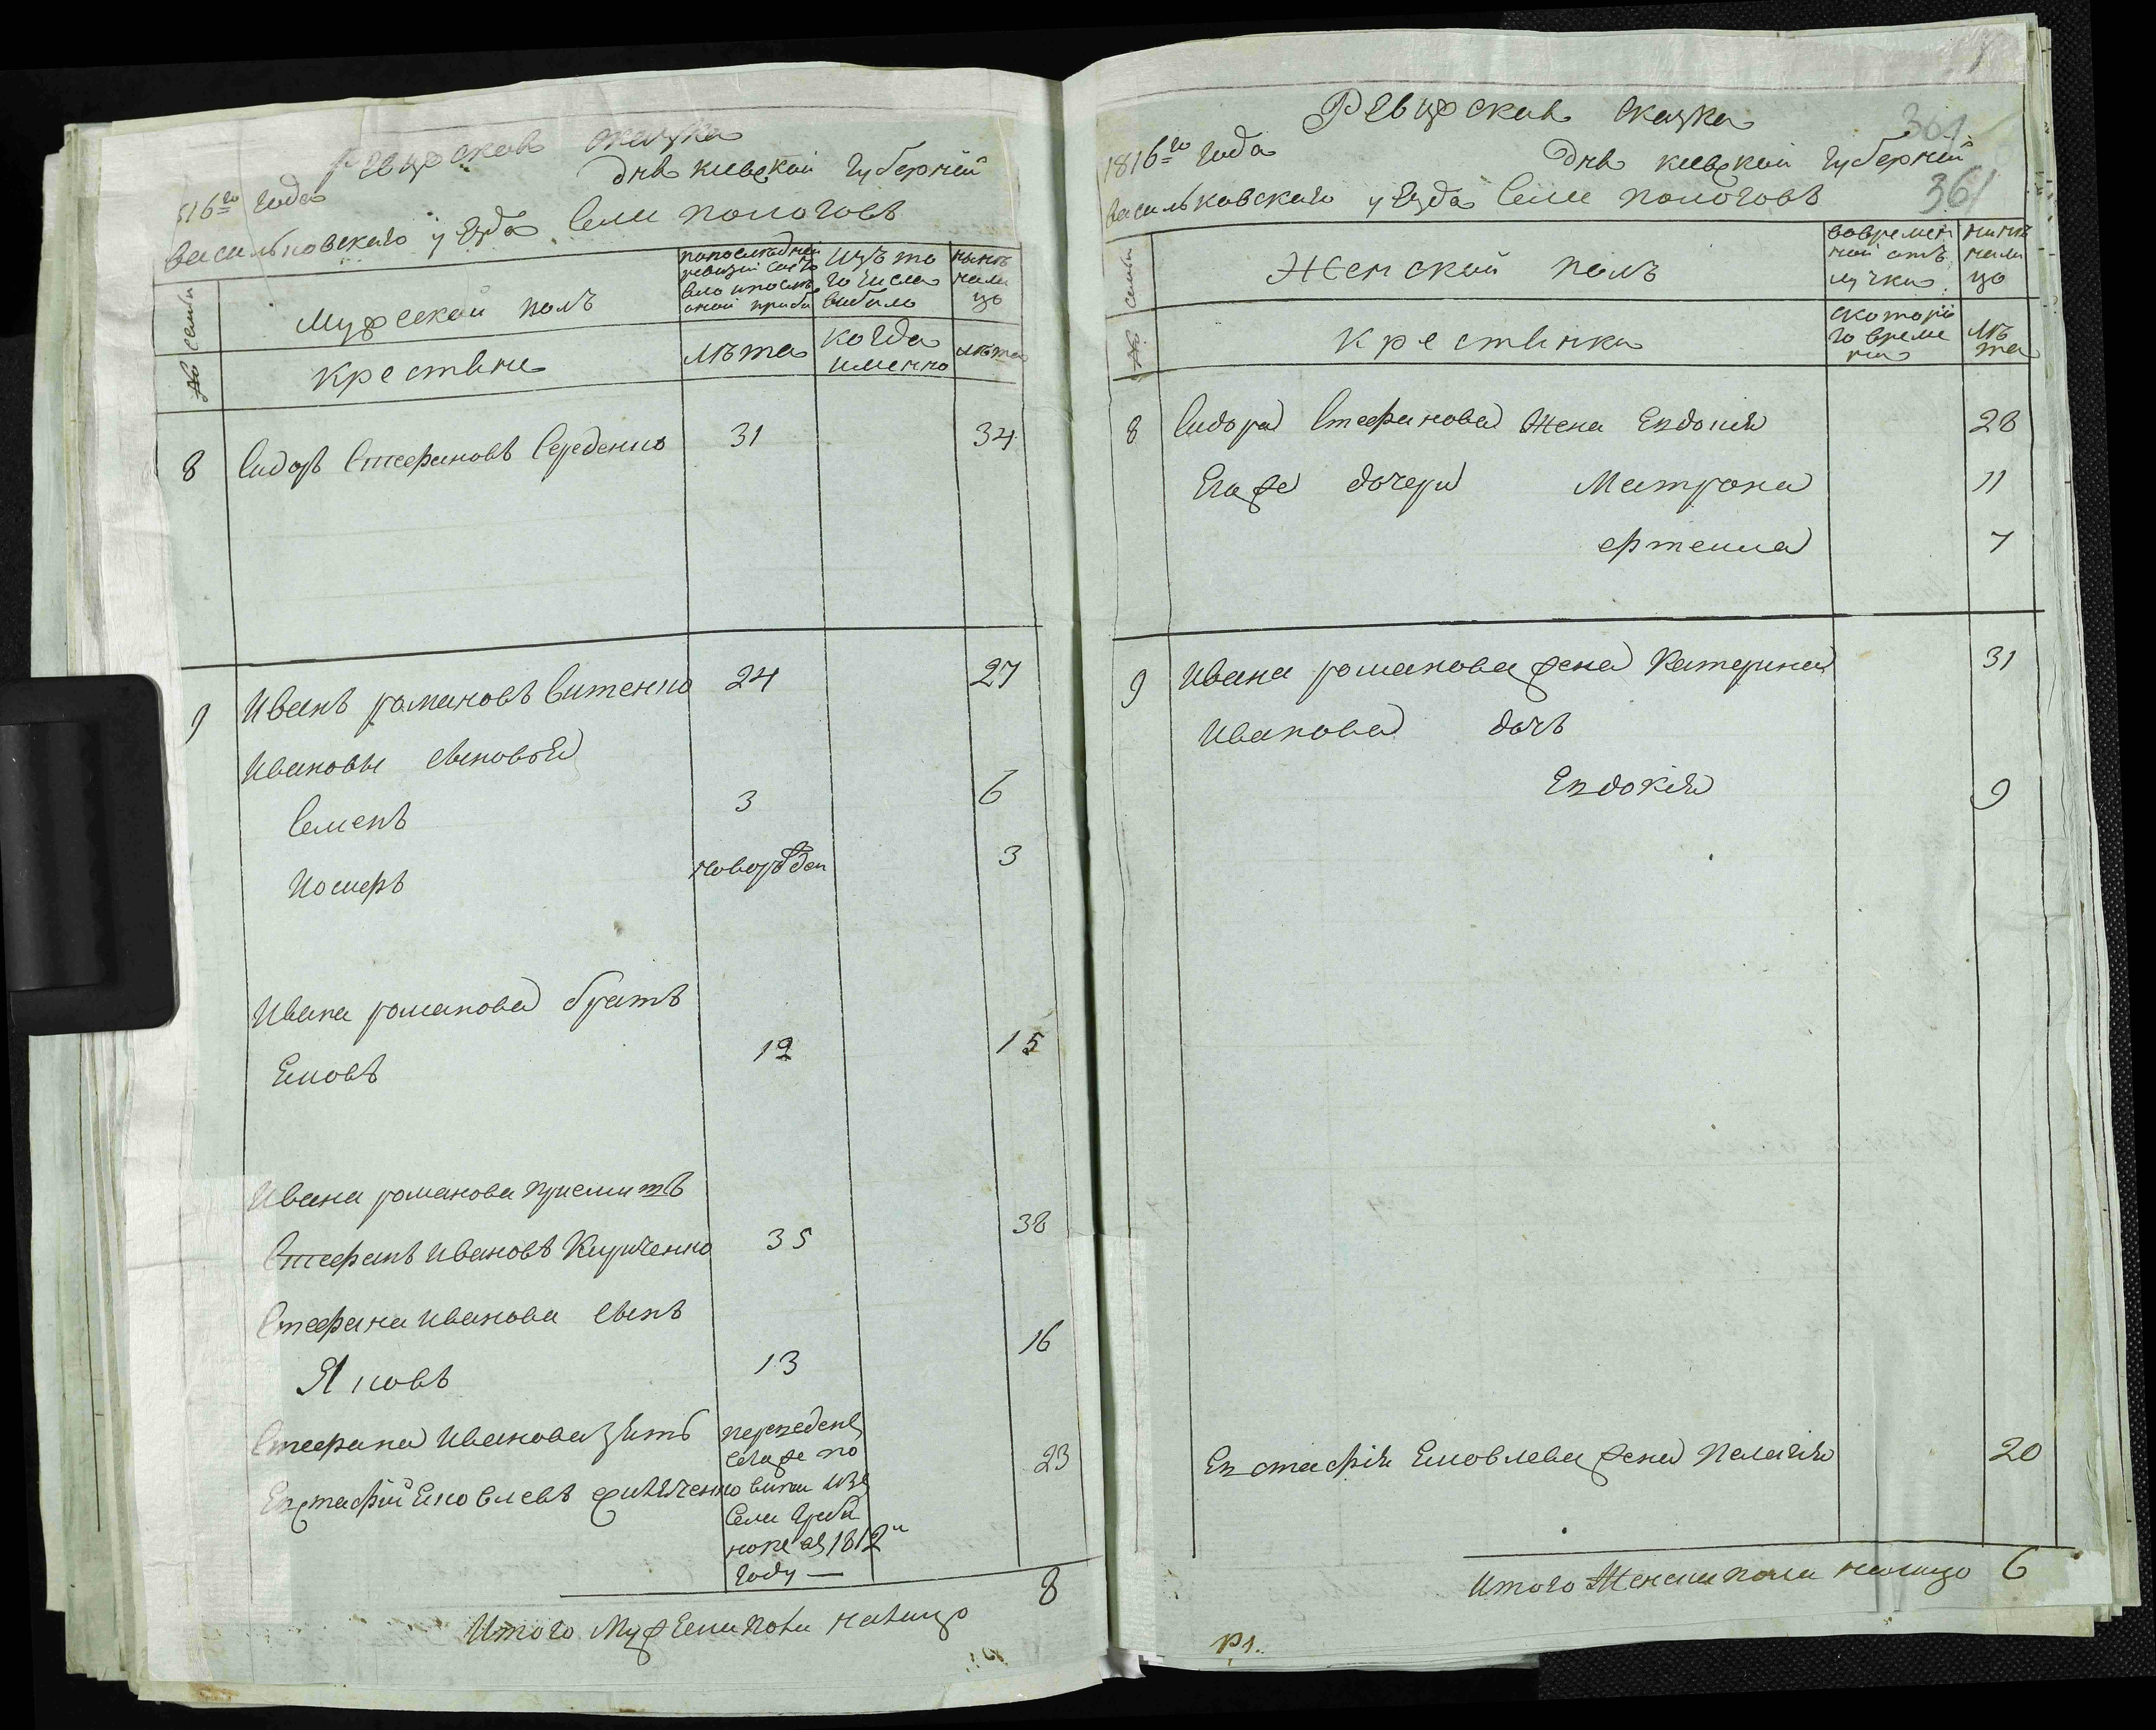 Ревизская сказка
1816го года
дня киевской губернїи
васильковскаго уезда села пологовъ
№ семьи
Мужеской полъ
крестьяне
попоследней ревизїи состояло ипослѣ оной прибы
лѣта
изъ то го числа выбыло
когда именно
нынѣ нали цо
лѣта
8 Сидоръ Стефановъ Середенко 31 34
9 Иванъ романовъ витенко 24 27
Ивановы сыновья
Семенъ 3 6
Иосифъ новорожден 3
Ивана романова братъ
Яковъ 12 15
Ивана романова приемитъ
Стефанъ Ивановъ Кириченко 35 38
Стефана Иванова сынъ
Яковъ 13 16
Стефана Иванова зять
Евстафий Яковлевъ
переведенъ
села
изъ
Села
1812м
году —
23
Итого Мужеска пола налицо 8
Ревизская сказка
361
1816го года
дня киевской губернїи
361
васильковскаго уезда села пологовъ
№ семьи
Женской полъ
крестьянки
вовремен ной отъ лучки
скоторо го време ни
нинѣ нали цо
лѣ та
8 Сидора Стефанова Жена Евдокия 28
Егоже дочери Матрона 11
7
9 Ивана романова жена Катерина 31
Иванова дочь
Евдокїя 9
Евстафїя Яковлева жена Пелагїя 20
Итого Женска пола налицо 6